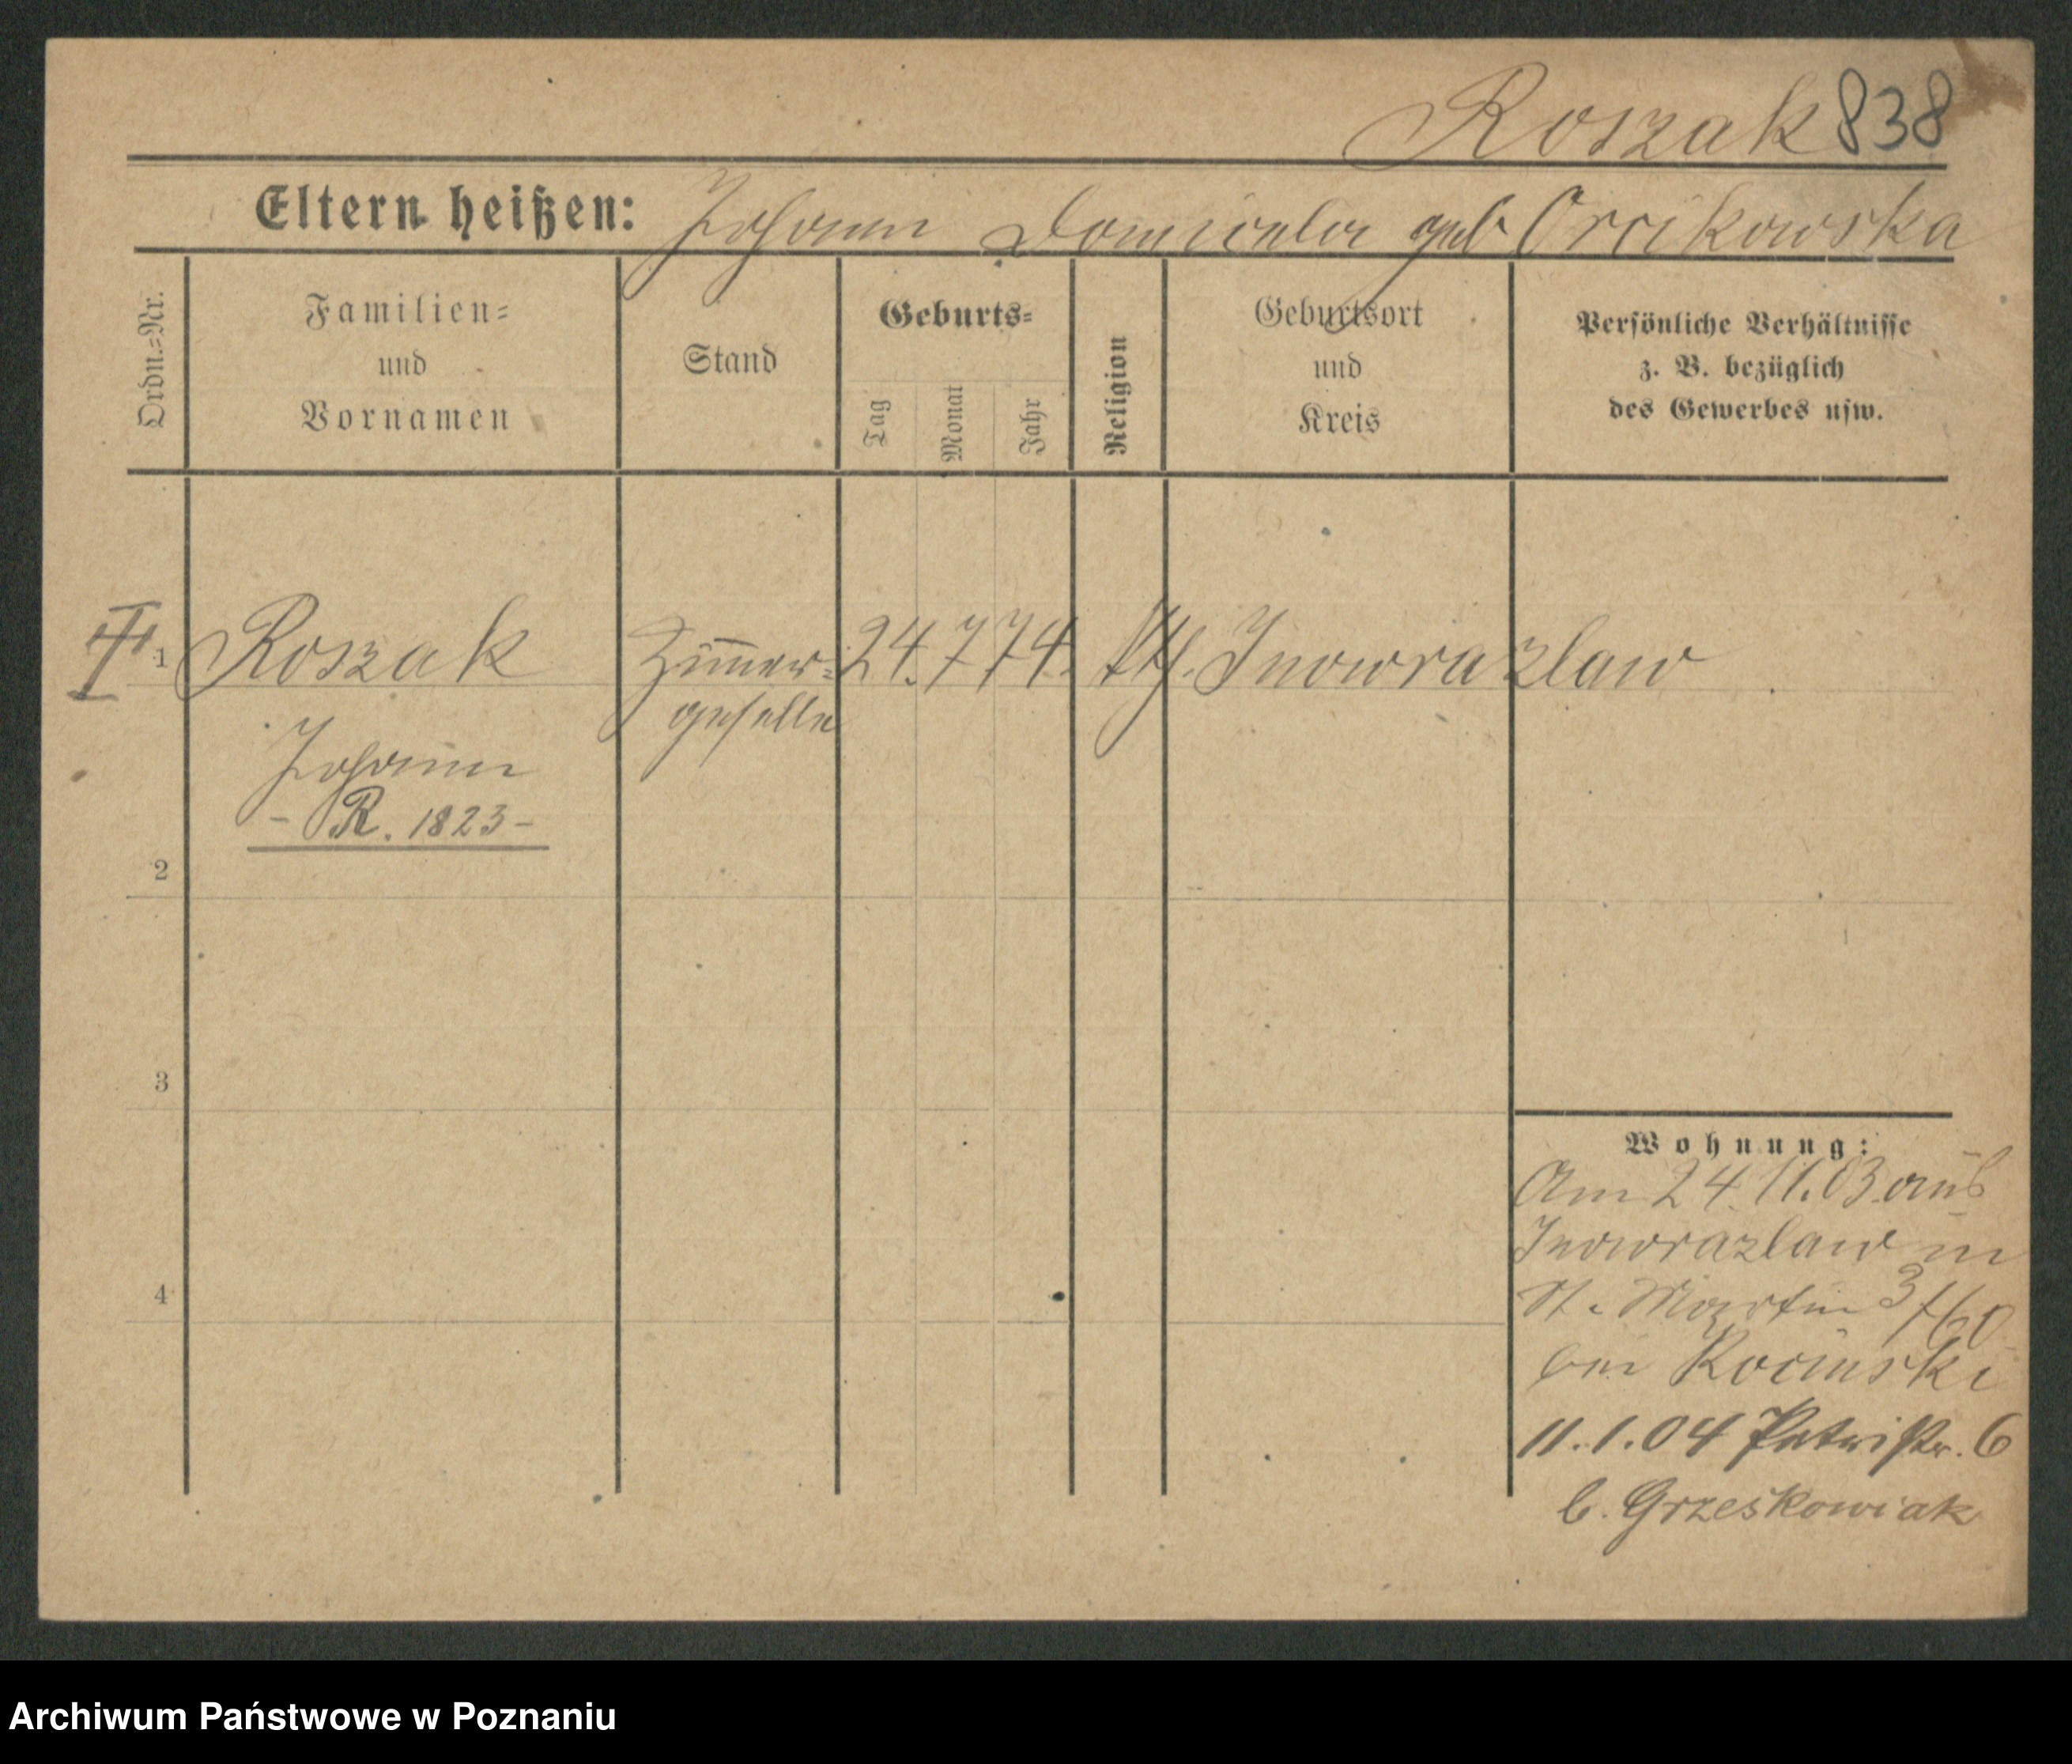 Roszak 838
Eltern heißen: Johann Domicela geb Orcikowska
Ordn.=Nr.
Familien=
und
Vornamen
Stand
Geburts=
Tag
Monat
Jahr
Religion
Geburtsort
und
Kreis
Persönliche Verhältnisse
z. B. bezüglich
des Gewerbes usw.
1 Roszak Zim̅er= 24. 7 74. kth. Inowrazlaw
geselle
Johann
- R. 1823 -
2
3
4
Wohnung:
Am 24. 11. 03 aus
Inowrazlaw in
St. Martin 3/60
bei Rocinski
11. 1. 04 Petristr. 6
b. Grzeskowiak
Archiwum Państwowe w Poznaniu